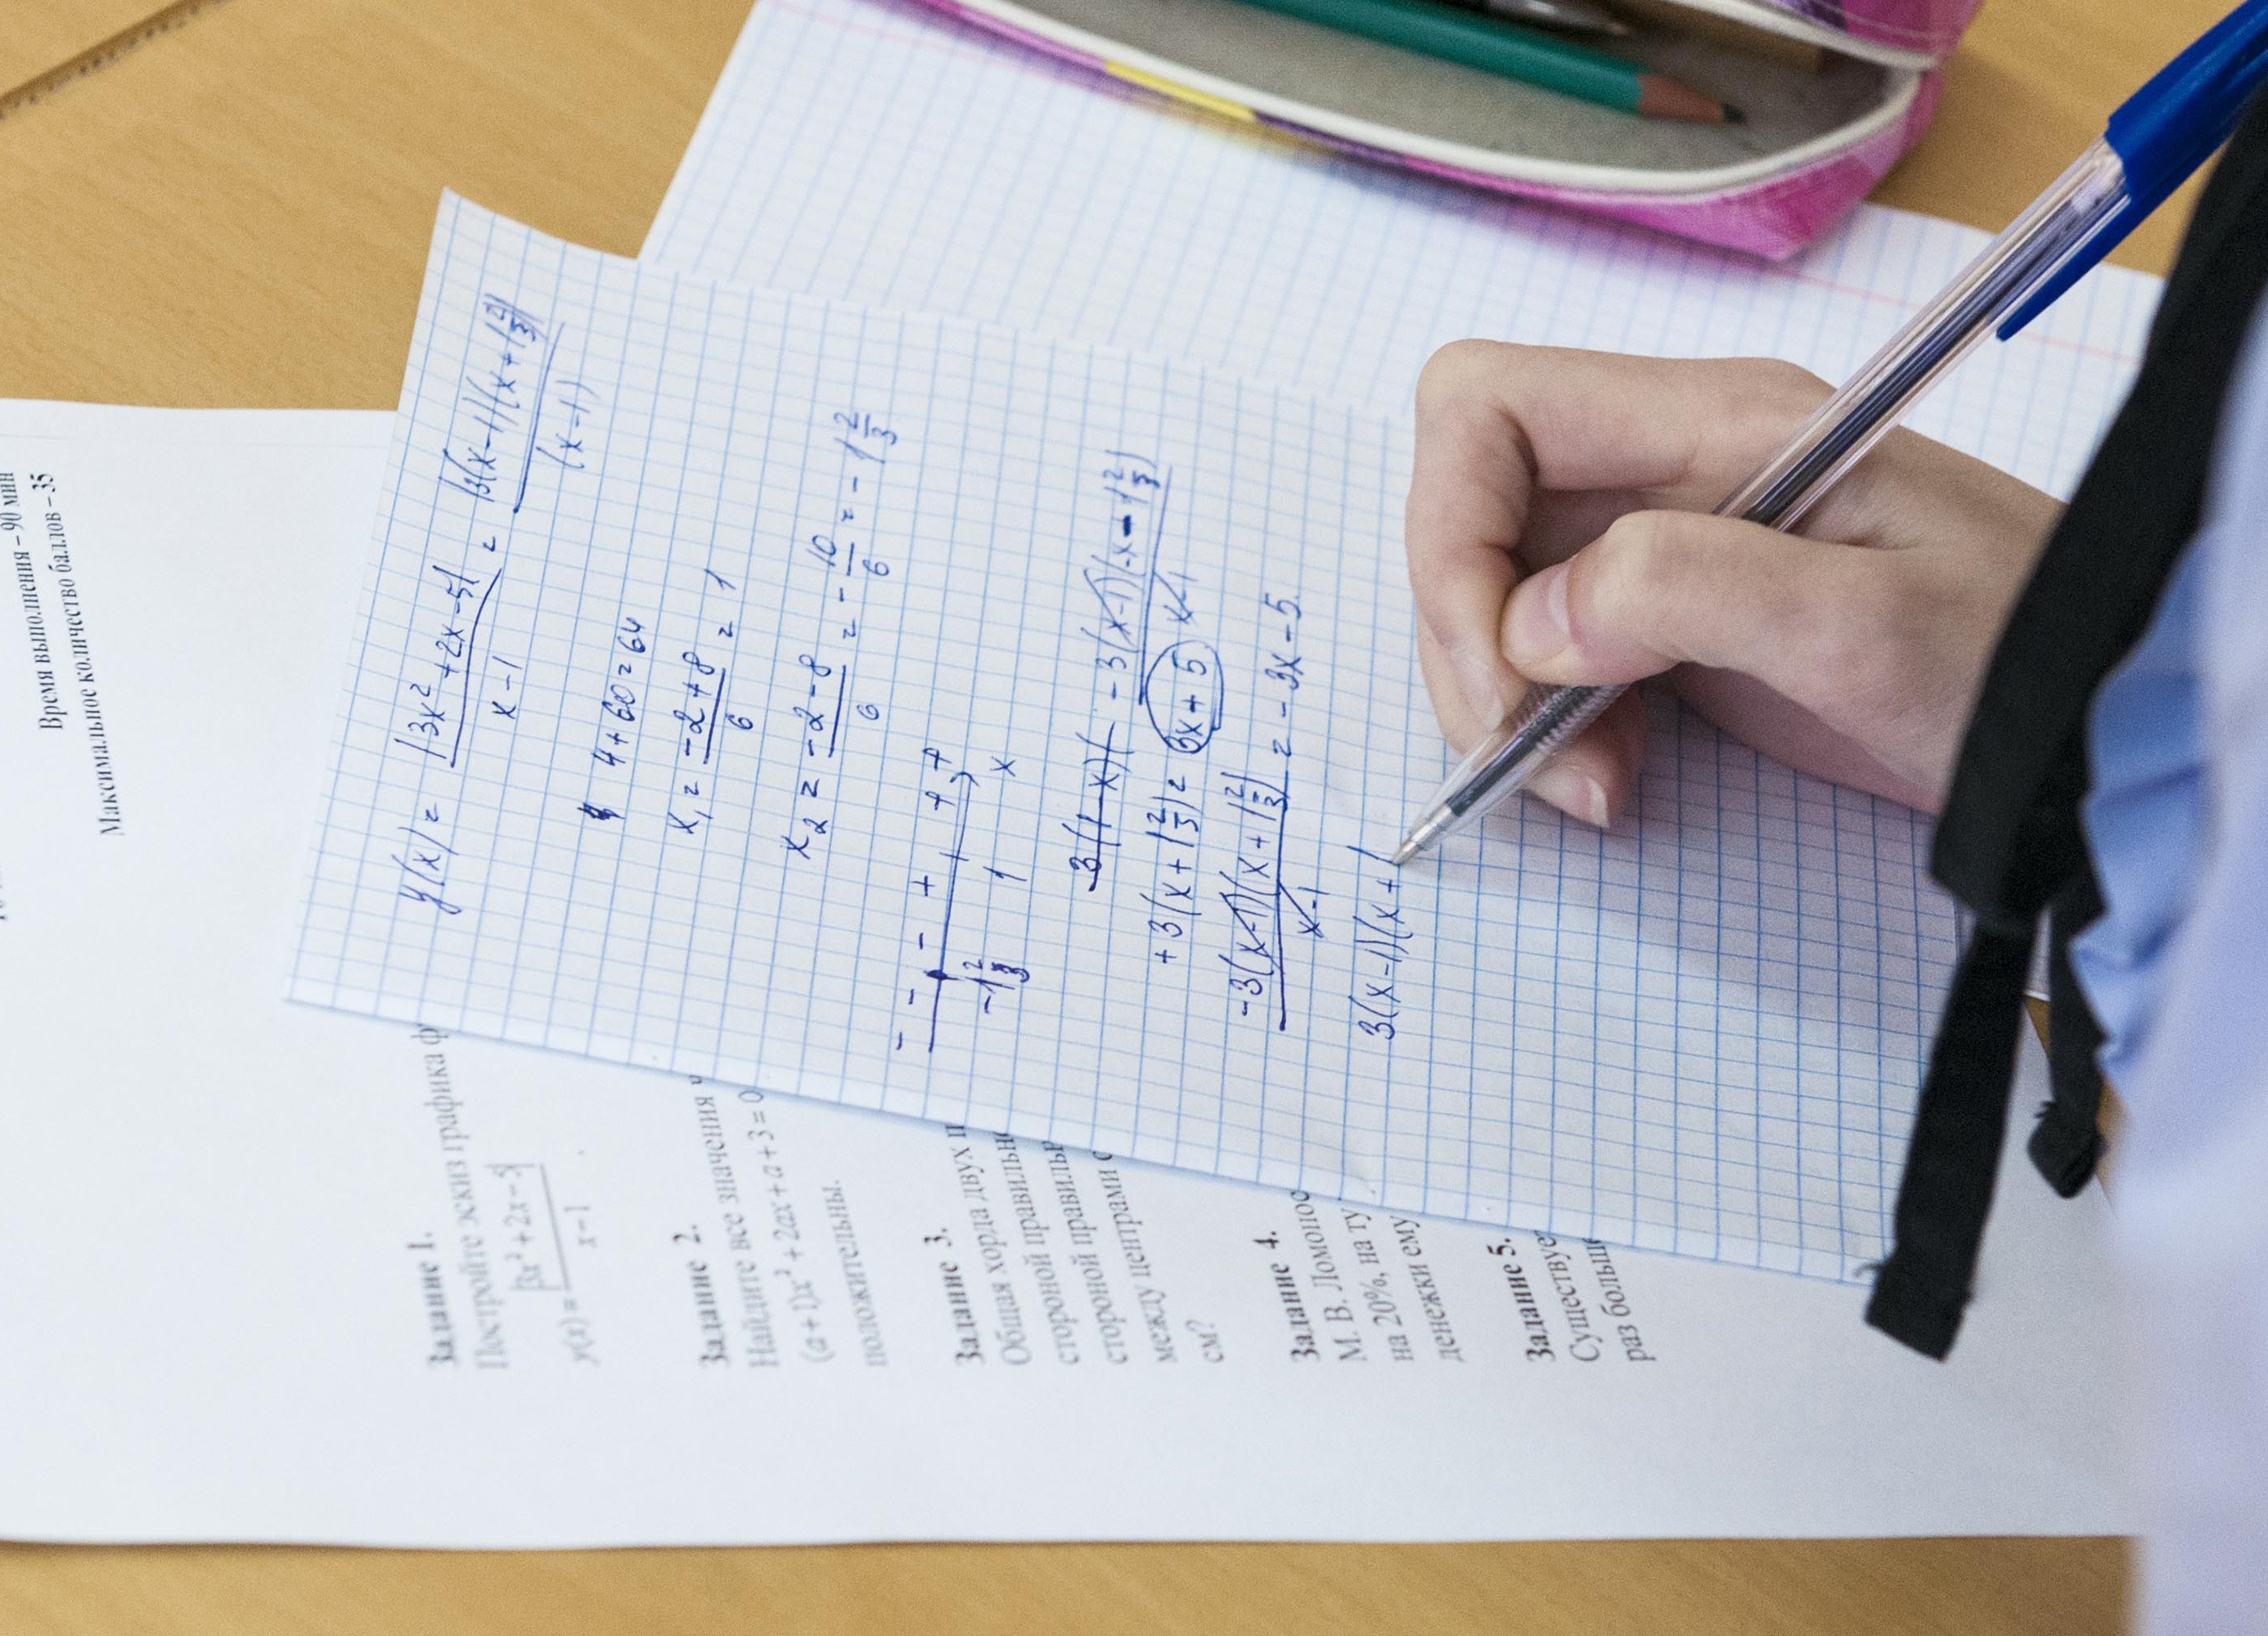 Время выполнения – 90 мин
Максимальное количество баллов – 35
Задание 1.
Постройте эскиз графика
y(x) = |3x² + 2x − 5| / x − 1
Задание 2.
Найдите все значения
(a + 1)x² + 2ax + a + 3 = 0
положительны.
Задание 3.
Общая хорда двух
стороной
стороной
между центрами
см?
Задание 4.
М. В.
на 20%, на
денежки ему
Задание 5.
раз
y(x) = |3x² + 2x − 5| / x − 1 = |3(x − 1)(x + 1 2/3)| / (x − 1)
4 + 60 = 64
x₁ = −2 + 8 / 6 = 1
x₂ = −2 − 8 / 6 = − 10/6 = − 1 2/3
− − − + + +
−1 2/3 1 x
3(1 − x)( − 3(x−1)(−x − 1 2/3) / x−1
+ 3(x + 1 2/3) = 3x + 5
−3(x−1)(x + 1 2/3) / x−1 = − 3x − 5
3(x−1)(x + 1